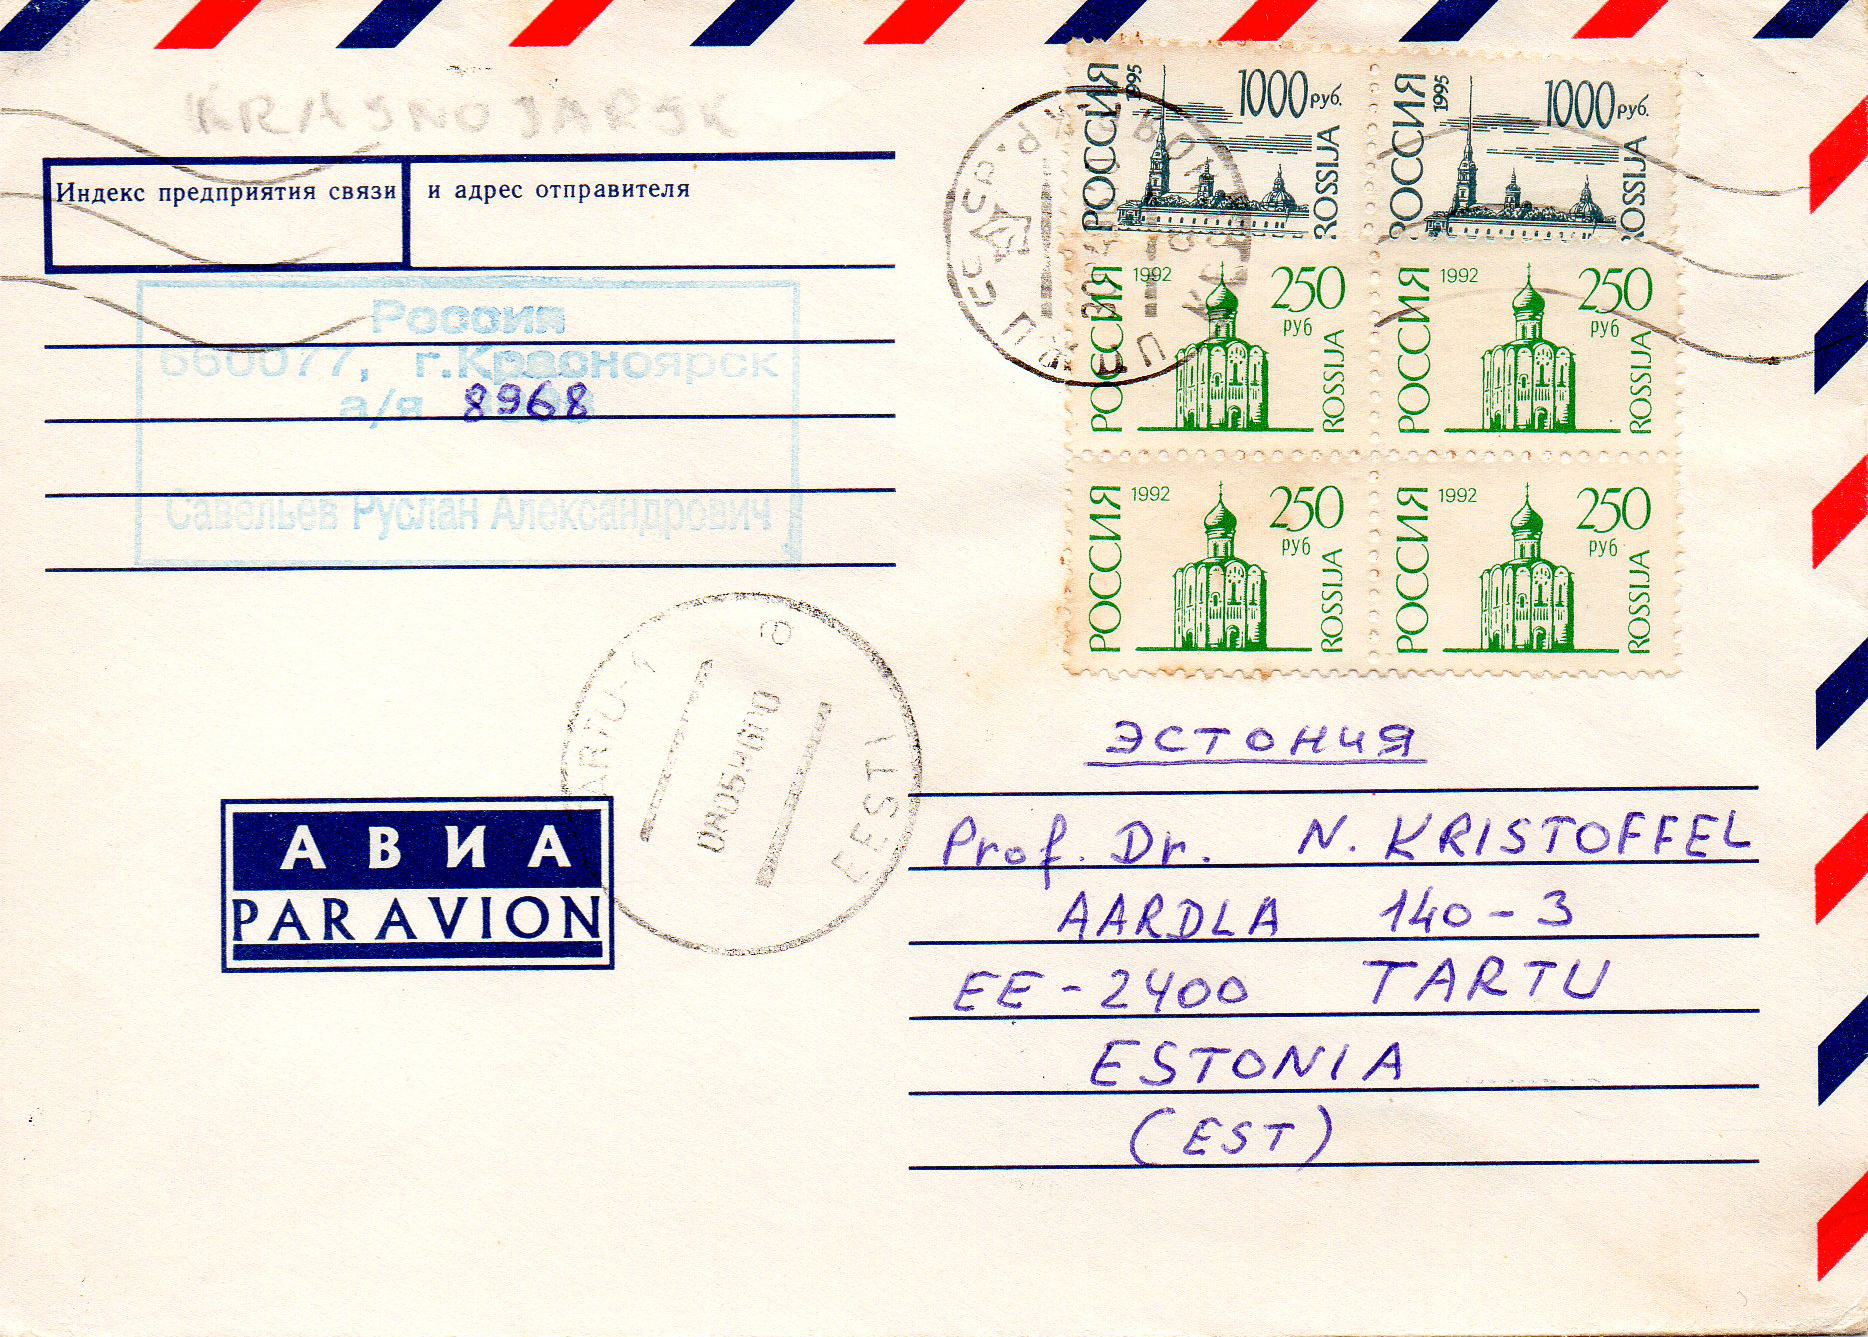 KRASNOJARSK
Индекс предприятия связи и адрес отправителя
Россия
660077, г.Красноярск
а/я 8968
Савельев Руслан Александрович
РОССИЯ 1995 1000 руб. ROSSIJA
РОССИЯ 1995 1000 руб. ROSSIJA
РОССИЯ 1992 250 руб ROSSIJA
РОССИЯ 1992 250 руб ROSSIJA
РОССИЯ 1992 250 руб ROSSIJA
РОССИЯ 1992 250 руб ROSSIJA
СССР
TARTU-1
EESTI
АВИА
PAR AVION
ЭСТОНИЯ
Prof. Dr. N. KRISTOFFEL
AARDLA 140-3
EE-2400 TARTU
ESTONIA
(EST)